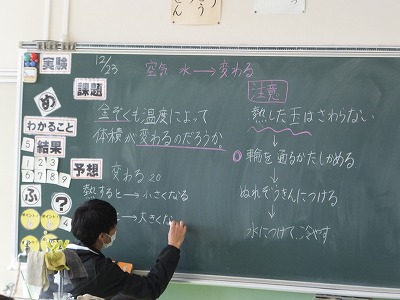 実験
12/23
空気 水 → 変わる
課題
め
金ぞくも温度によって
体積が変わるのだろうか。
わかること
結果
予想
変わる 20
熱すると→小さくなる
→大きくな
ふ
?
注意
熱した玉はさわらない
↓
輪を通るかたしかめる
↓
ぬれぞうきんにつける
↓
水につけて、冷やす